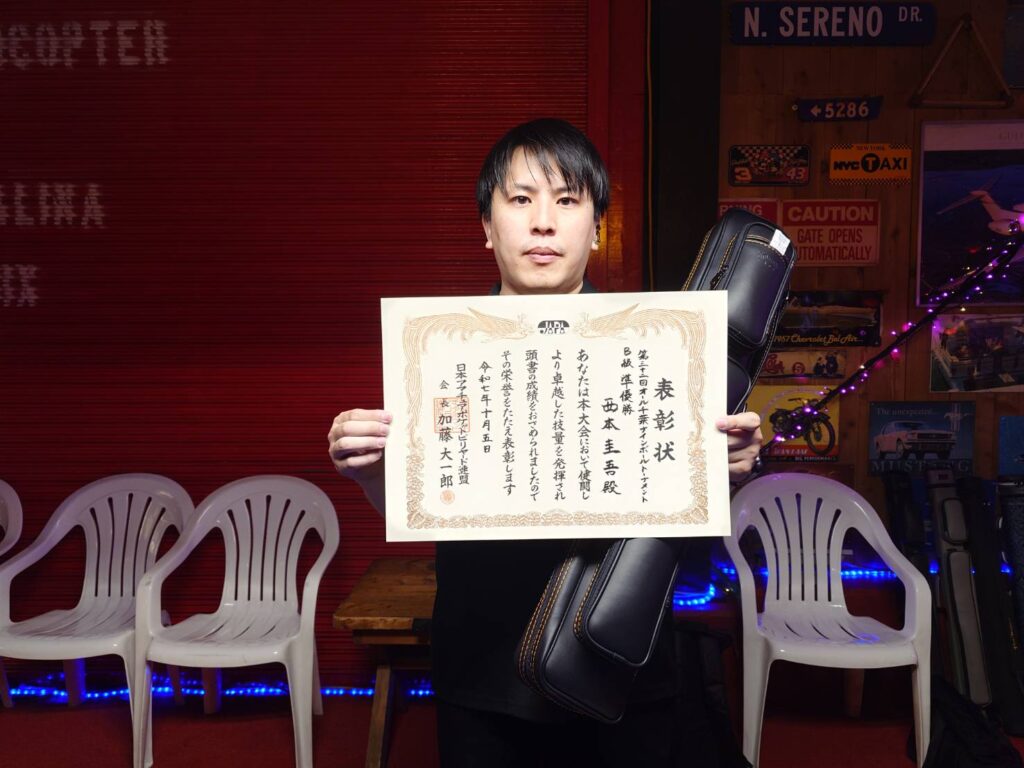 COPTER
N. SERENO DR.
5286
NEW YORK
NYC TAXI
3
43
CAUTION
GATE OPENS
AUTOMATICALLY
1957 Chevrolet Bel Air
The unexpected...
MUSTANG
JAPA
表彰状
第二十一回オール千葉ナインボールトーナメント
B級 準優勝
西本 圭吾 殿
あなたは本大会において健闘し
より卓越した技量を発揮され
頭書の成績をおさめられましたので
その栄誉をたたえ表彰します
令和七年十月五日
日本アマチュアポケットビリヤード連盟
会長 加藤 大一郎